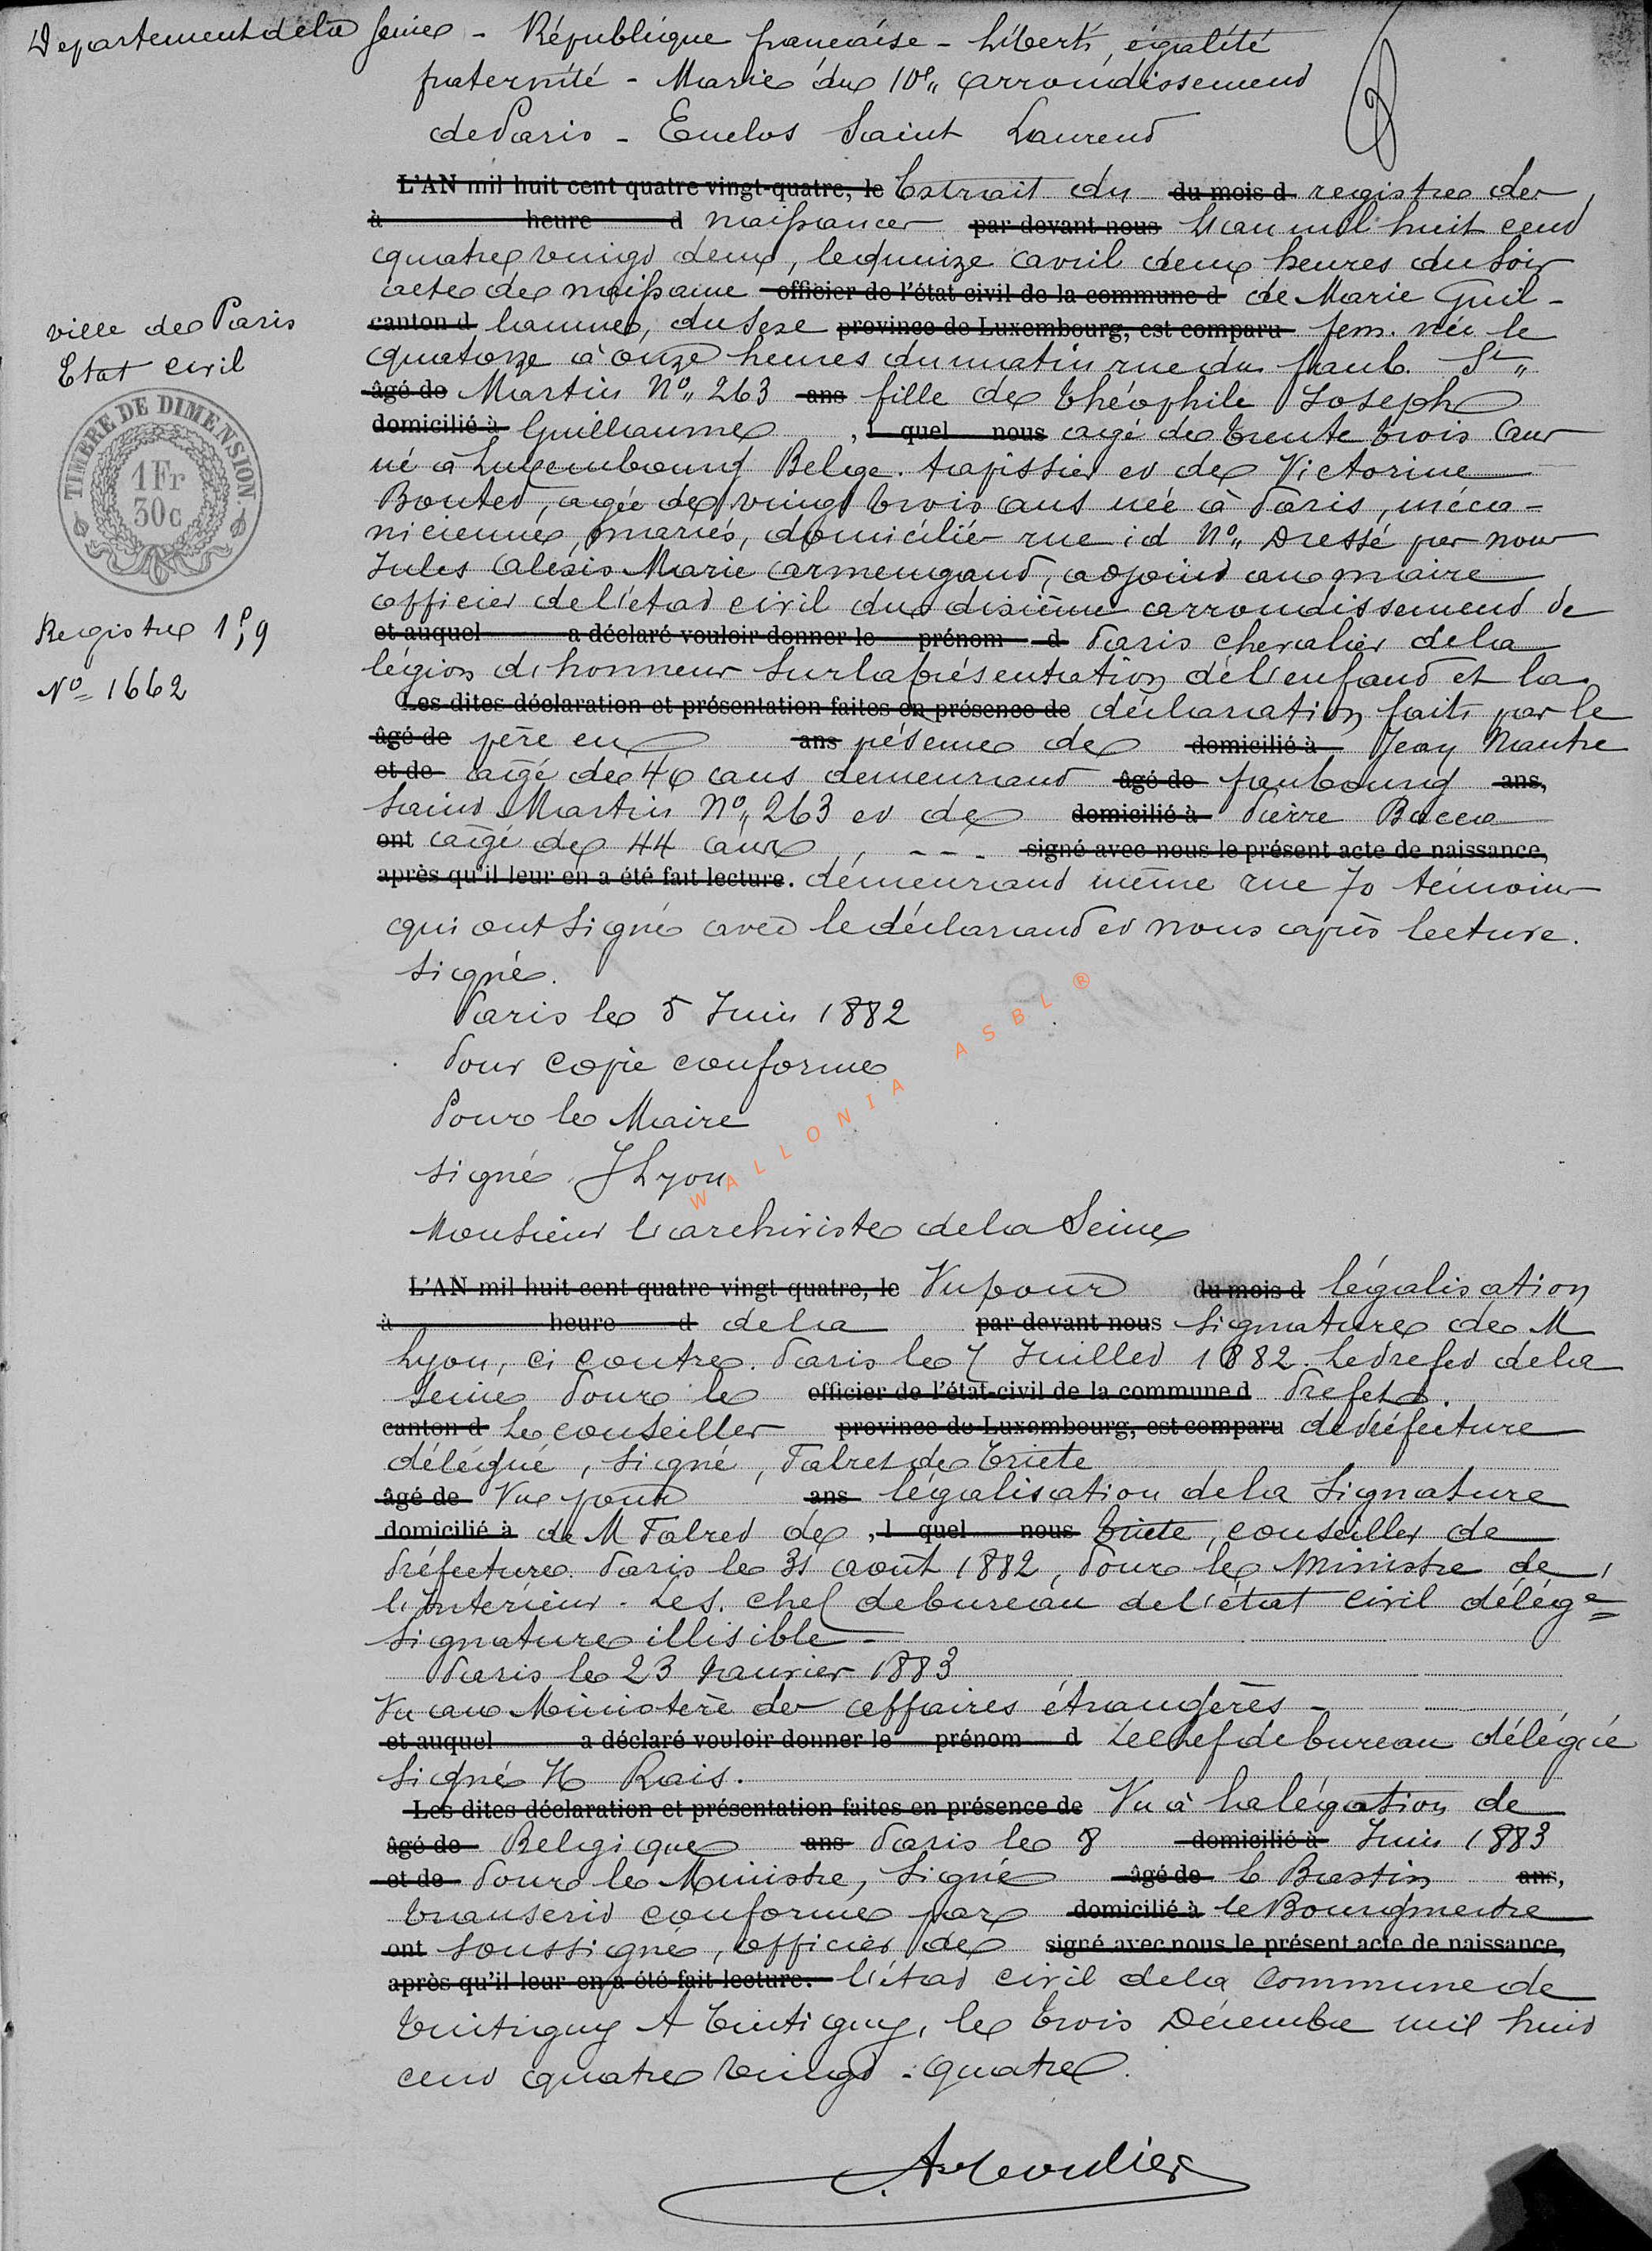 Departement de la Seine - République française - Liberté, égalité
fraternité - Mairie du 10e,, arrondissement
de Paris - Enclos Saint Laurent
L'AN mil huit cent quatre vingt-quatre, le Extrait du du mois d registre des
à heure d naissances par devant nous L'an mil huit cent
quatre vingt deux, le quinze avril deux heures du soir
acte de naissance officier de l'état civil de la commune d de Marie Guil-
ville de Paris
canton d laume, du sexe province de Luxembourg, est comparu fem. née le
Etat civil
quatorze à onze heures du matin rue du faub. St,,
TIMBRE DE DIMENSION
1 Fr
30c
âgé de Martin No,, 263 ans fille de Théophile Joseph
domicilié à Guillaume , l quel nous agé de trente trois ans
né à Luxembourg Belge. tapissier et de Victorine
Boutet, agée de vingt trois ans née à Paris, méca-
nicienne, mariés, domiciliés rue id No,, Dressé par nous
Jules Alexis Marie Armengaud, adjoint au maire
officier de l'etat civil du dixième arrondissement de
Registre 19
et auquel a déclaré vouloir donner le prénom d Paris chevalier de la
légion d'honneur sur la présentation de l'enfant et la
No 1662
Les dites déclaration et présentation faites en présence de déclaration faite par le
âgé de père en ans présence de domicilié à Jean
et de agé de 40 ans demeurant âgé de faubourg ans,
Saint Martin No,, 263 et de domicilié à Pierre Bacca
ont agé de 44 ans, - - - signé avec nous le présent acte de naissance,
après qu'il leur en a été fait lecture. demeurant même rue 70 témoins
qui ont signé avec le déclarant et nous après lecture.
signé.
Paris le 5 Juin 1882
Pour copie conforme
Pour le Maire
signé J Lyon
WALLONIA ASBL ®
Monsieur l'archiviste de la Seine
L'AN mil huit cent quatre vingt quatre, le Vu pour du mois d légalisation
à heure d de la par devant nous signature de M
Lyon, ci contre. Paris le 7 Juillet 1882. Le Prefet de la
Seine Pour le officier de l'état-civil de la commune d Prefet.
canton d Le conseiller province de Luxembourg, est comparu de Préfecture
délégué, signé,
âgé de Vu pour ans légalisation de la signature
domicilié à de M de , l quel nous conseiller de
Préfecture. Paris le 31 août 1882, Pour le Ministre de
l'Interieur. Le S. chef de bureau de l'état civil délég
signature illisible -
Paris le 23 Janvier 1883
Vu au Ministère des affaires étrangères -
et auquel a déclaré vouloir donner le prénom d Le chef de bureau délégué
signé H Rais.
Les dites déclaration et présentation faites en présence de Vu à la légation de
âgé de Belgique ans Paris le 8 domicilié à Juin 1883
et de Pour le Ministre, signé âgé de Bastin ans,
Transcrit conforme par domicilié à le Bourgmestre
ont soussigné, officier de signé avec nous le présent acte de naissance,
après qu'il leur en a été fait lecture. l'état civil de la commune de
Tintigny A Tintigny, le trois Décembre mil huit
cent quatre vingt-quatre.